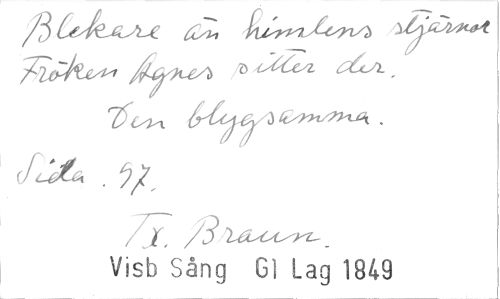 Blekare än himlens stjärnor
Fröken Agnes sitter der.
Den blygsamma.
Sida. 97.
Tx. Braun.
Visb Sång Gl Lag 1849